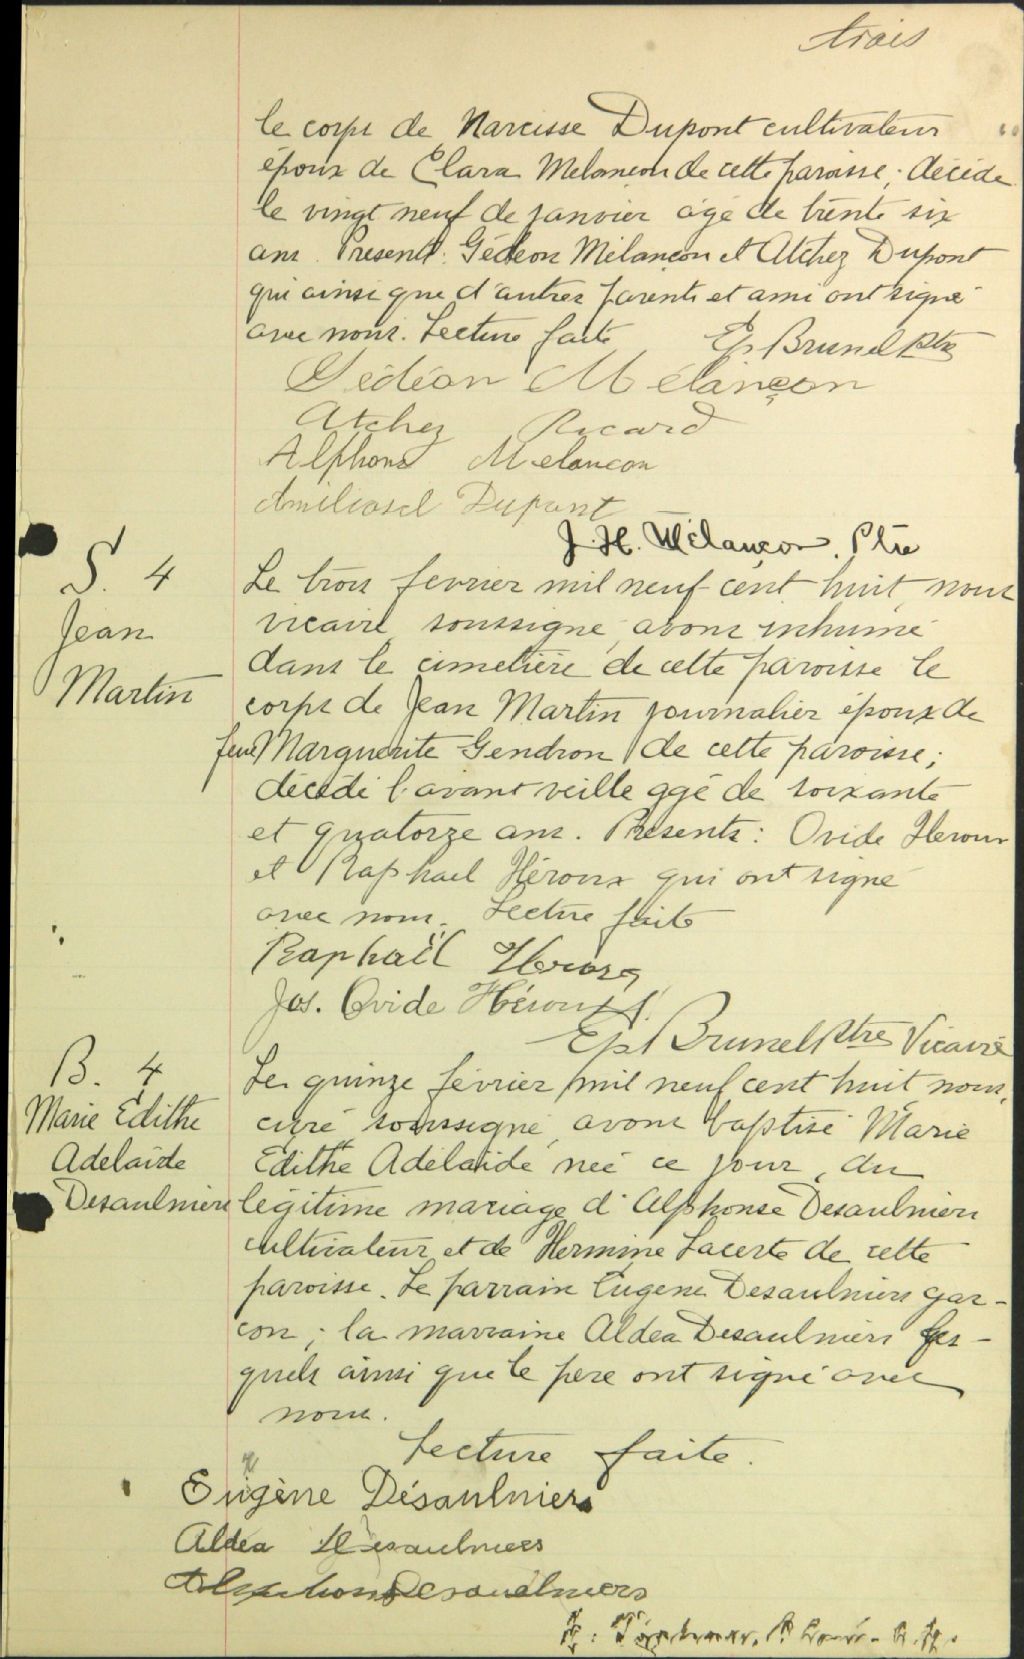 trois
le corps de Narcisse Dupont cultivateur
époux de Clara Melançon de cette paroisse; décédé
le vingt neuf de janvier agé de trente six
ans. Present: Gédéon Mélançon et Atchez Dupont
qui ainsi que d'autres parents et ami ont signé
avec nous. Lecture faite Ep Brunel Ptre
Gédéon Mélançon
Atchez Ricard
Alphonse Melancon
Dupont
J. H. Mélançon, Ptre
S. 4
Jean
Martin
Le trois fevrier mil neuf cent huit, nous
vicaire soussigné, avons inhumé
dans le cimetière de cette paroisse le
corps de Jean Martin journalier époux de
feue Marguerite Gendron de cette paroisse;
décédé l'avant veille agé de soixante
et quatorze ans. Présents: Ovide Heroux
et Raphael Héroux qui ont signé
avec nous. Lecture faite
Raphaël Heroux
Jos. Ovide Héroux
Ep Brunel Ptre Vicaire
B. 4
Marie Edithe
Adelaide
Desaulniers
Le quinze février mil neuf cent huit, nous,
curé soussigné, avons baptisé Marie
Edithe Adélaide née ce jour, du
légitime mariage d'Alphonse Desaulniers
cultivateur et de Hermine Lacerte de cette
paroisse. Le parrain Eugene Desaulniers gar-
con; la marraine Aldea Desaulniers les-
quels ainsi que le père ont signé avec
nous.
Lecture faite.
Eugène Désaulniers
Aldea Desaulniers
Alphonse Desaulniers